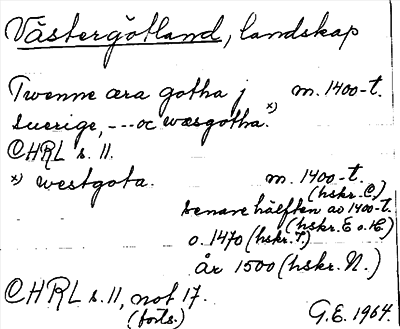 Västergötland, landskap
Twenne æra gotha j m. 1400-t.
Suerige, --- oc wæsgotha. x)
CHRL s. 11.
x) westgota. m. 1400-t.
(hskr. C.)
senare hälften av 1400-t.
(hskr. E o. H.)
o. 1470 (hskr. I.)
år 1500 (hskr. N.)
CHRL s. 11, not 17.
(forts.) G.E. 1964.